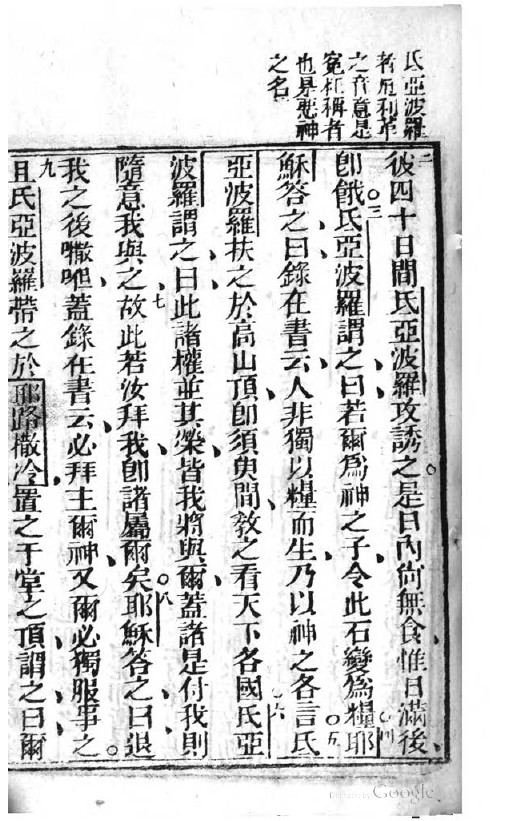 氏亞波羅
者厄利革
之音意是
寃枉稱者
也是惡神
之名
二
彼四十日間氏亞波羅攻誘之是日內尙無食惟日滿後
三
卽餓氏亞波羅謂之曰若爾爲神之子令此石變爲糧耶
四
穌答之曰錄在書云人非獨以糧而生乃以神之各言氏
五
亞波羅扶之於高山頂卽須臾間教之看天下各國氏亞
六
波羅謂之曰此諸權並其榮皆我將與爾蓋諸是付我則
七
隨意我與之故此若汝拜我卽諸屬爾矣耶穌答之曰退
八
我之後㘔呾蓋錄在書云必拜主爾神又爾必獨服事之
九
且氏亞波羅帶之於耶路撒冷置之于堂之頂謂之曰爾
Digitized by Google